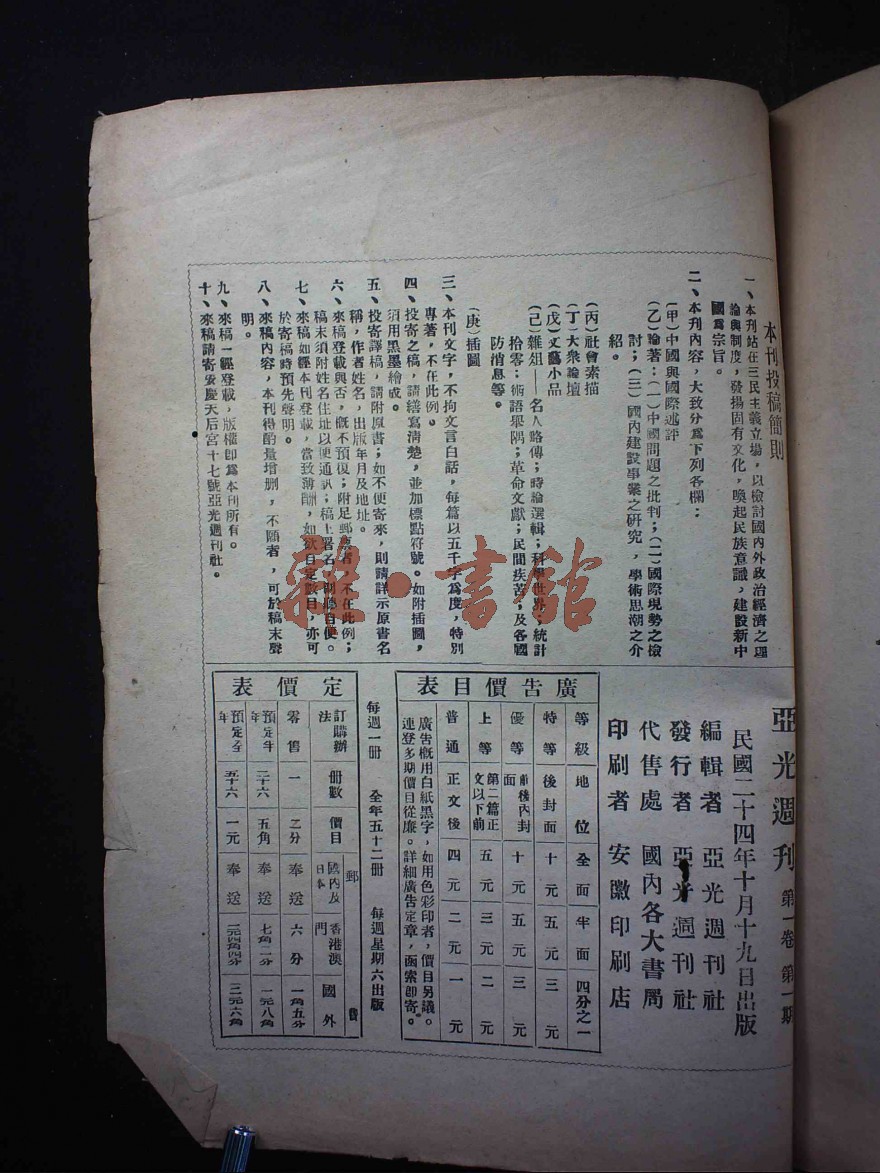 本刊投稿簡則
一、本刊站在三民主義立場，以檢討國內外政治經濟之理
論與制度，發揚固有文化，喚起民族意識，建設新中
國爲宗旨。
二、本刊內容，大致分爲下列各欄：
（甲）中國與國際述評
（乙）論著：（一）中國問題之批判；（二）國際現勢之檢
討；（三）國內建設事業之研究，學術思潮之介
紹。
（丙）社會素描
（丁）大衆論壇
（戊）文藝小品
（己）雜俎——名人略傳；時論選輯；科學世界；統計
拾零；術語舉隅；革命文獻；民間疾苦；及各國
防消息等。
（庚）插圖
三、本刊文字，不拘文言白話，每篇以五千字爲度，特別
專著，不在此例。
四、投寄之稿，請繕寫清楚，並加標點符號。如附插圖，
須用黑墨繪成。
五、投寄譯稿，請附原書；如不便寄來，則請詳示原書名
稱，作者姓名，出版年月及地址。
六、來稿登載與否，概不預復；附足郵票者，不在此例；
稿末須附姓名住址以便通訊；稿上署名，則聽自便。
七、來稿如經本刊登載，當致薄酬，如欲自定數目，亦可
於寄稿時預先聲明。
八、來稿內容，本刊得酌量增删，不願者，可於稿末聲
明。
九、來稿一經登載，版權即爲本刊所有。
十、來稿請寄安慶天后宮十七號亞光週刊社。
亞光週刊 第一卷 第一期
民國二十四年十月十九日出版
編輯者 亞光週刊社
發行者 亞光週刊社
代售處 國內各大書局
印刷者 安徽印刷店
廣告價目表
等級 地位 全面 半面 四分之一
特等 後封面 十元 五元 三元
優等 前後內封面 十元 五元 三元
上等 第二篇正文以下前 五元 三元 二元
普通 正文後 四元 二元 一元
廣告概用白紙黑字，如用色彩印者，價目另議。
連登多期價目從廉。詳細廣告定章，函索即寄。
每週一冊 全年五十二冊 每週星期六出版
定價表
訂購辦法 冊數 價目 郵費 國內及日本 香港澳門 國外
零售 一 二分 奉送 六分 一角五分
預定半年 二十六 五角 奉送 七角二分 一元八角
預定全年 五十六 一元 奉送 二元四角四分 三元六角
雜·書館